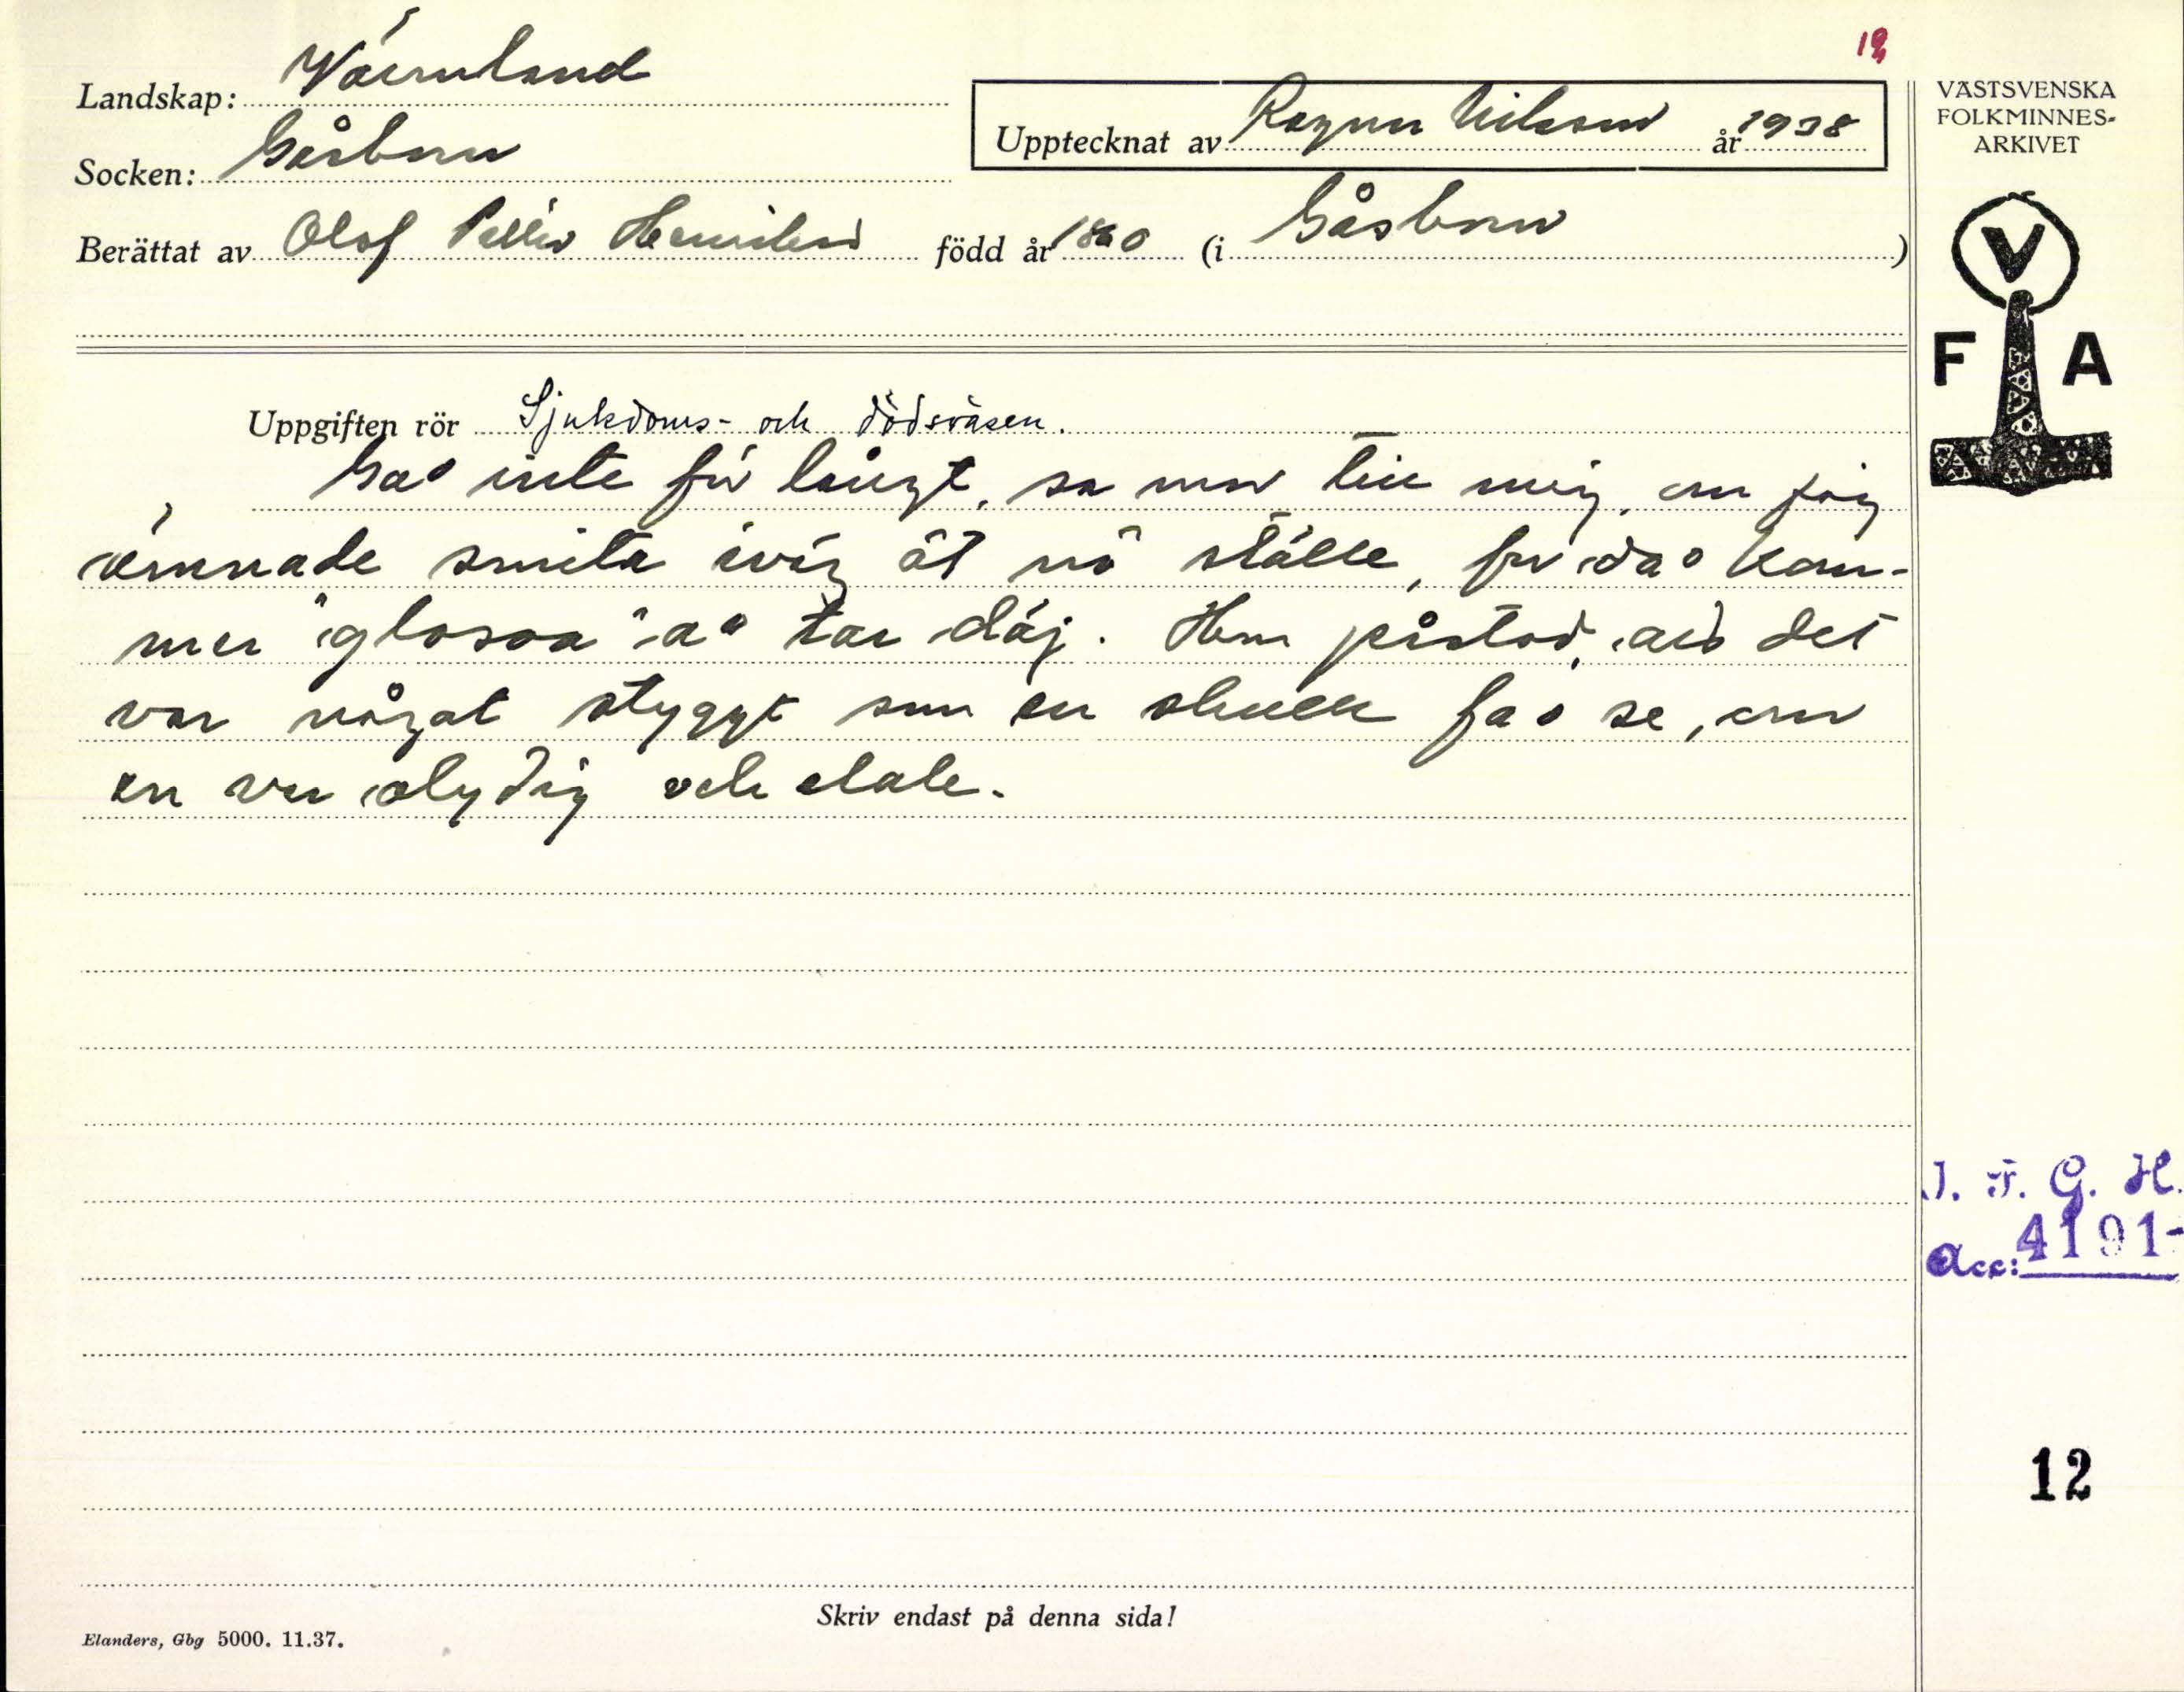 12
Landskap: Värmland
Socken: Gåsborn
Upptecknat av Ragnar Nilsson år 1938
Berättat av Olof Petter Henriksson född år 1860 (i Gåsborn)
VÄSTSVENSKA
FOLKMINNES-
ARKIVET
V
F A
Uppgiften rör Sjukdoms- och dödsväsen.
Gå inte för långt, sa mor till mig, om jag
ämnade smita iväg åt nå ställe, för då kom-
mer "glosoa" å tar däj. Hon påstod, att det
var något styggt som en skulle få se, om
en var olydig och elak.
J. F. G. H.
Acc: 4191-
12
Skriv endast på denna sida!
Elanders, Gbg 5000. 11.37.